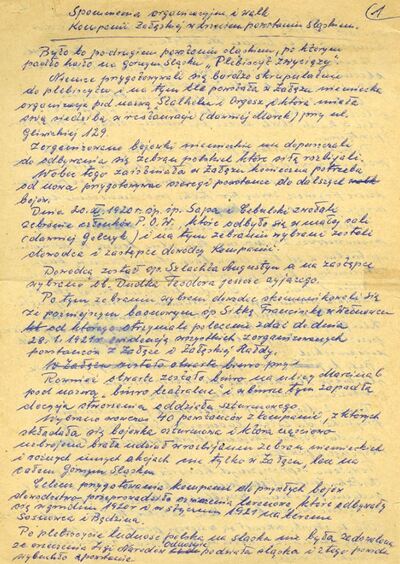 1
Wspomnienia organizacyjne i walk
Kompanii Załęskiej w trzecim powstaniu śląskim.
Było to po drugiem powstaniu śląskiem, po którym
padło hasło na górnym śląsku „Plebiscyt zwycięży".
Niemcy przygotowywali się bardzo skrupulatnie
do plebiscytu i na tym tle powstała w Załężu niemiecka
organizacja pod nazwą Stalhelm i Orgesz i która miała
swą siedzibę w restauracji (dawniej Morek) przy ul.
Gliwickiej 129.
Zorganizowane bojówki niemieckie nie dopuszczali
do odbywania się zebrań polskich które siłą rozbijali.
Wobec tego zaistniała w Załężu konieczna potrzeba
od nowa przygotowywać szeregi powstańcze do dalszych
bojów.
Dnia 20. 1920 r. śp. śp. Sapa i Cebulski zwołali
zebranie członków P.O.W. które odbyło się w małej sali
(dawniej Golczyk) i na tym zebraniu wybrani zostali
dowódca i zastępca dowódcy Kompanii.
Dowódcą został śp. Szlachta Augustyn a na zastępcę
wybrano ob. Dudka Teodora jeszcze żyjącego.
Po tym zebraniu wybrani dowódcy skomunikowali się
z późniejszym baonowym śp Sitkę Franciszkę
od którego otrzymali polecenie zdać do dnia
28.1.1921 r. ewidencję wszystkich zorganizowanych
powstańców z Załęża i Załęskiej Hałdy.
W Załężu zostało otwarte biuro przy
Również otwarte zostało biuro na ulicy Marcina 6
pod nazwą „biuro teatralne" i w biurze tym zapadła
decyzja stworzenia oddziału szturmowego.
Wybrano wówczas 40 powstańców z kompanii z których
składała się bojówka szturmowa i która częściowo
uzbrojona brała udział w rozbijaniu zebrań niemieckich
i różnych innych akcjach nie tylko w Załężu, lecz na
całem Górnym Śląsku.
Celem przygotowania kompanii do przyszłych bojów
dowództwo przeprowadziło ćwiczenia terenowe które odbywały
się w grudniu 1920 r. w styczniu 1921 na terenie
Sosnowca i Będzina.
Po plebiscycie ludność polska na śląsku nie była zadowolona
ze orzeczenia Ligi Narodów odnośnie podziału śląska i z tego powodu
wybuchło powstanie